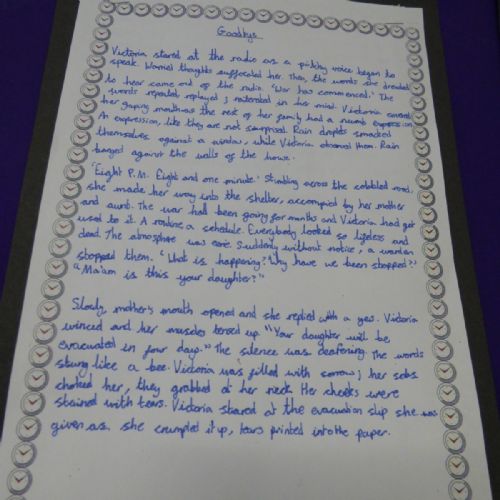 Goodbye
Victoria stared at the radio as a voice began to
speak. Worried thoughts suffocated her. Then, the words she dreaded
to hear came out of the radio. 'War has commenced.' The
words repeated, replayed, in his mind. Victoria covered
her gaping mouth as the rest of her family had a numb expression.
An expression, like they are not surprised. Rain droplets smacked
themselves against a window, while Victoria observed them. Rain
banged against the walls of the house.
'Eight P.M. Eight and one minute.' Stumbling across the cobbled road,
she made her way into the shelter, accompied by her mother
and aunt. The war had been going for months and Victoria had got
used to it. A routine, a schedule. Everybody looked so lifeless and
dead. The atmosphere was eerie. Suddenly, without notice, a warden
stopped them. "What is happening? Why have we been stopped?"
"Ma'am is this your daughter?"
Slowly, mother's mouth opened and she replied with a yes. Victoria
winced and her muscles tensed up. "Your daughter will be
evacuated in four days." The silence was deafening. The words
stung like a bee. Victoria was filled with sorrow; her sobs
choked her, they grabbed at her neck. Her cheeks were
stained with tears. Victoria stared at the evacuation slip she was
given as she crumpled it up, tears printed into the paper.